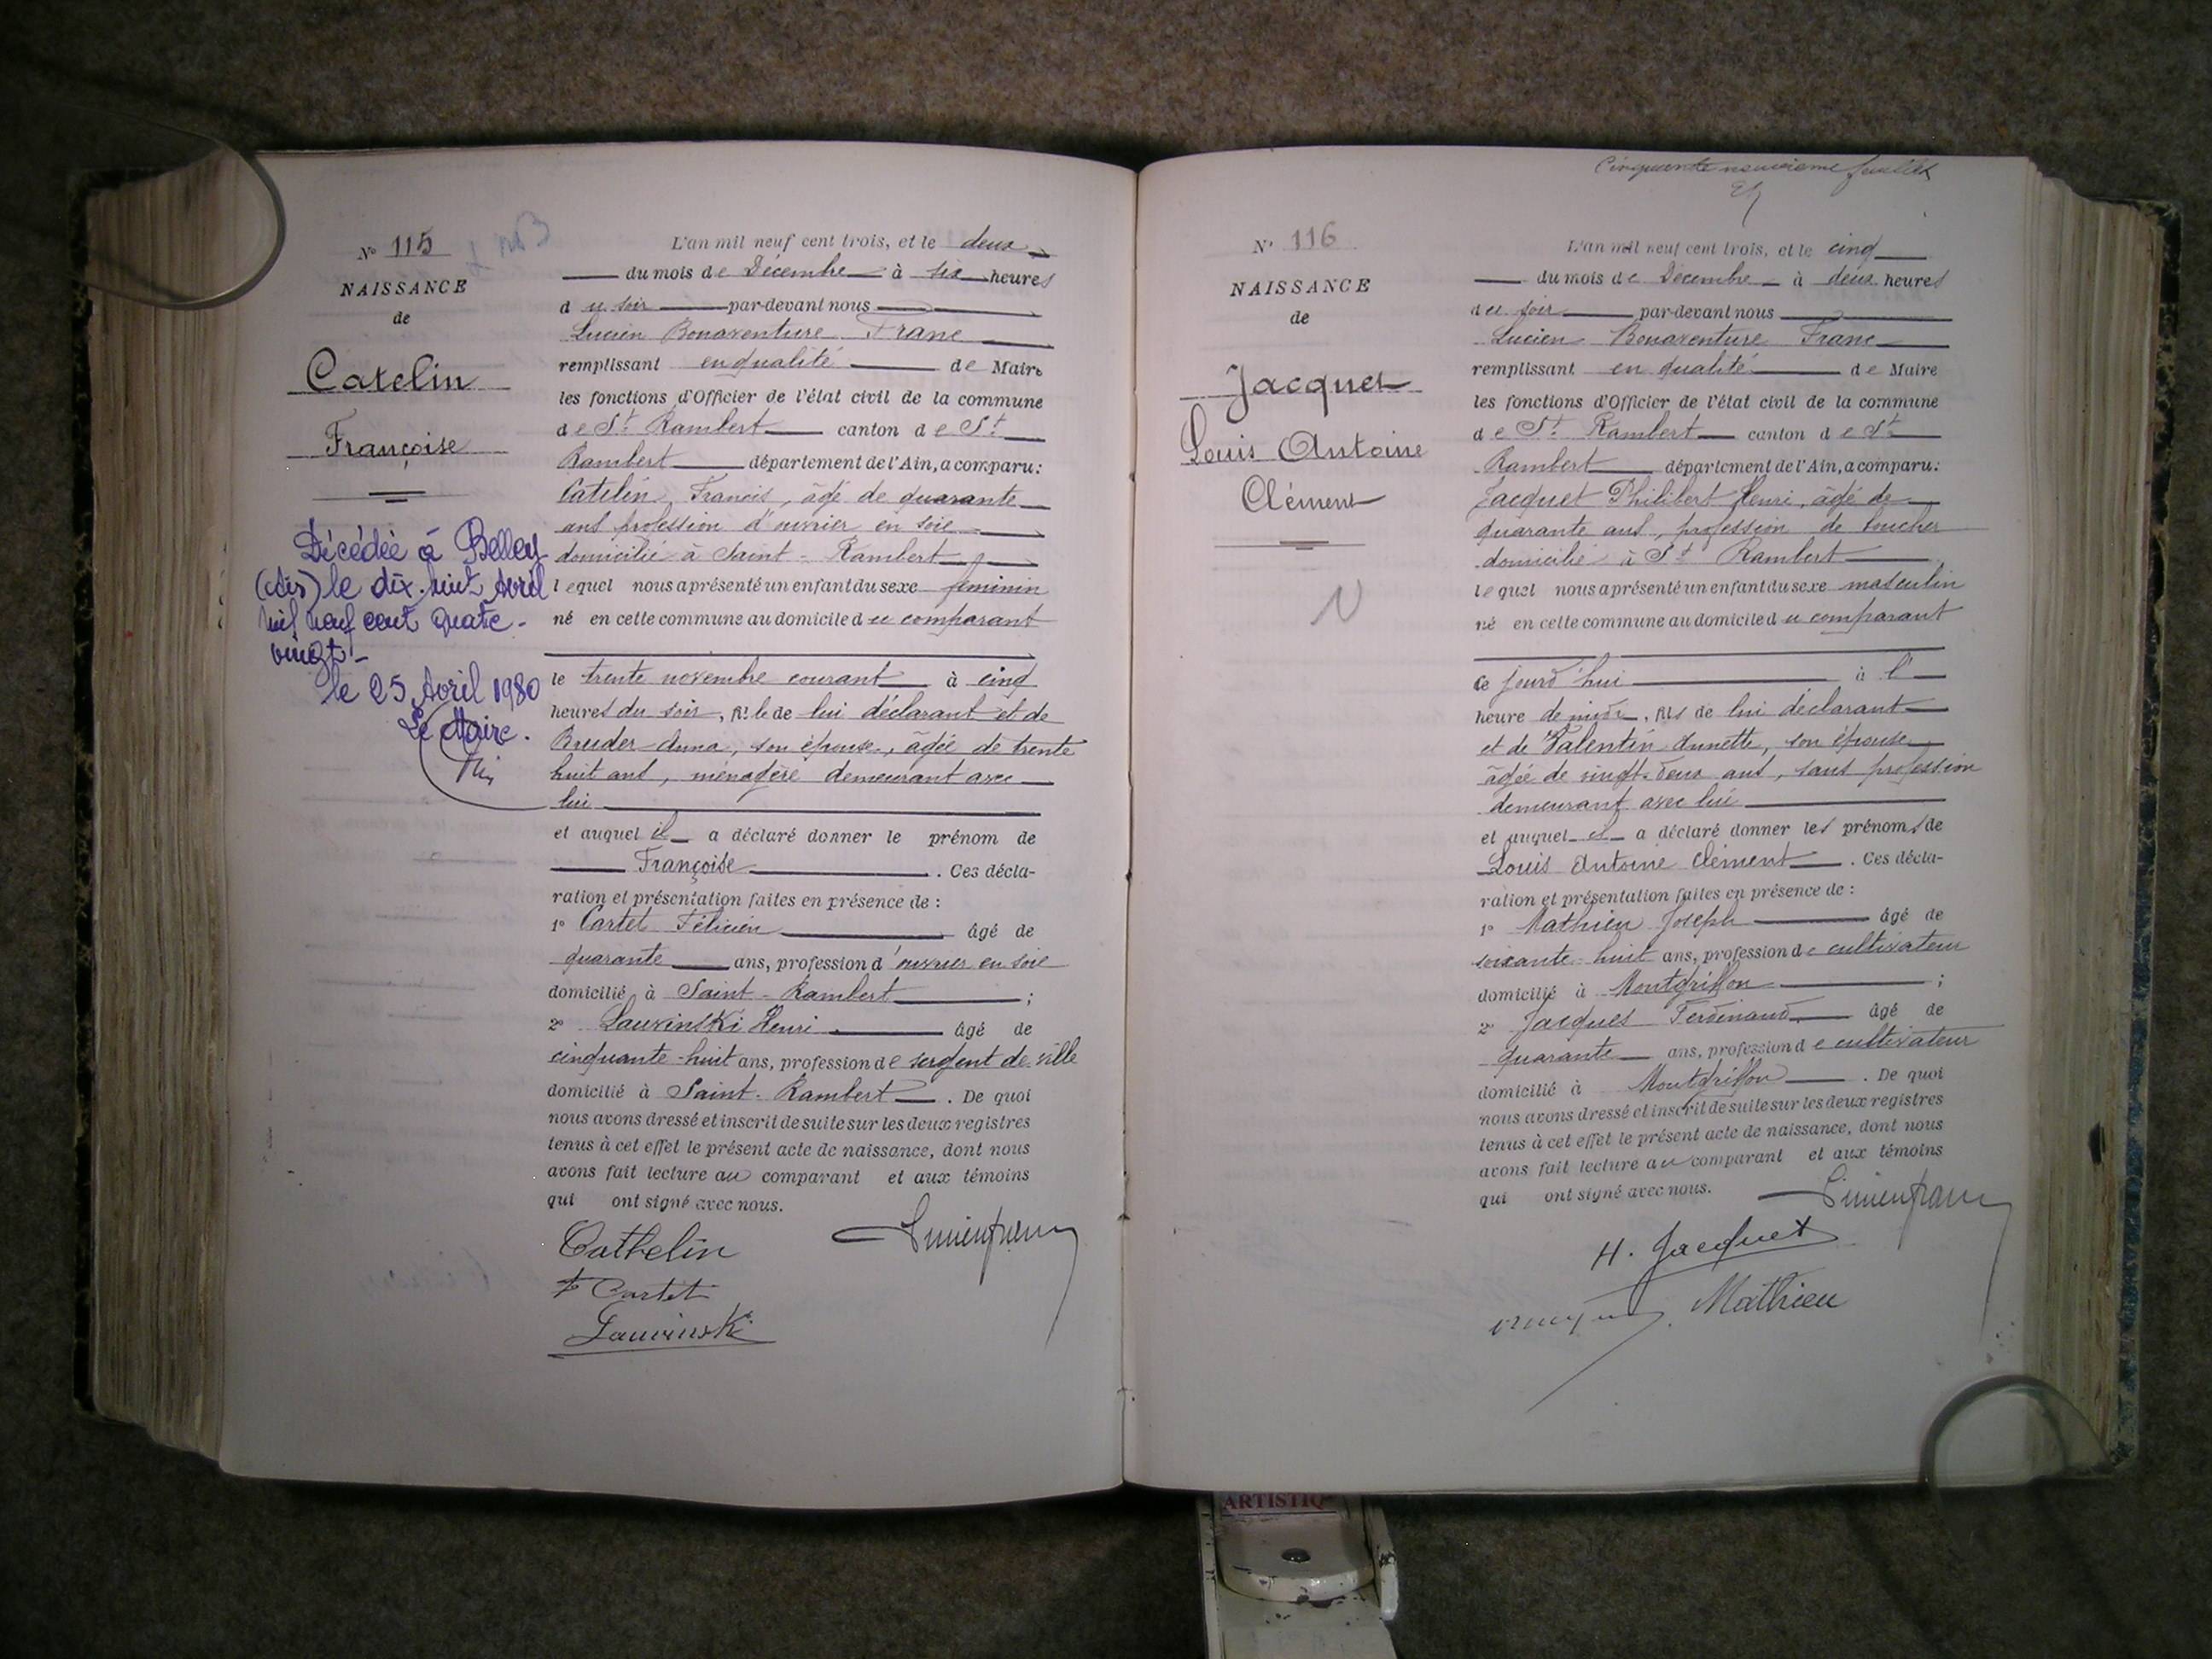 N° 115
NAISSANCE
de
Catelin
Françoise
Décédée à Belley
(Ain) le dix-huit Avril
mil neuf cent quatre-
vingt-
le 25 Avril 1980
Le Maire.
L'an mil neuf cent trois, et le deux
du mois de Décembre à six heures
du soir par-devant nous
Lucien Bonaventure Franc
remplissant en qualité de Maire
les fonctions d'Officier de l'état civil de la commune
de St Rambert canton de St
Rambert département de l'Ain, a comparu:
Catelin Francis, âgé de quarante
ans profession d'ouvrier en soie
domicilié à Saint-Rambert
lequel nous a présenté un enfant du sexe féminin
né en cette commune au domicile du comparant
le trente novembre courant à cinq
heures du soir, fille de lui déclarant et de
Bruder Anna, son épouse, âgée de trente
huit ans, ménagère demeurant avec
lui
et auquel il a déclaré donner le prénom de
Françoise. Ces décla-
ration et présentation faites en présence de :
1° Cartet Félicien âgé de
quarante ans, profession d'ouvrier en soie
domicilié à Saint-Rambert ;
2° Lauvinski Henri âgé de
cinquante-huit ans, profession de sergent de ville
domicilié à Saint-Rambert. De quoi
nous avons dressé et inscrit de suite sur les deux registres
tenus à cet effet le présent acte de naissance, dont nous
avons fait lecture au comparant et aux témoins
qui ont signé avec nous.
Cathelin
Lucien Franc
F Cartet
Lauvinski
Cinquante neuvième feuillet
N° 116
NAISSANCE
de
Jacquet
Louis Antoine
Clément
N
L'an mil neuf cent trois, et le cinq
du mois de Décembre à deux heures
du soir par-devant nous
Lucien Bonaventure Franc
remplissant en qualité de Maire
les fonctions d'Officier de l'état civil de la commune
de St Rambert canton de St
Rambert département de l'Ain, a comparu:
Jacquet Philibert Henri, âgé de
quarante ans, profession de boucher
domicilié à St Rambert
lequel nous a présenté un enfant du sexe masculin
né en cette commune au domicile du comparant
ce jourd'hui à l'
heure de midi, fils de lui déclarant
et de Valentin Annette, son épouse
âgée de vingt-deux ans, sans profession
demeurant avec lui
et auquel il a déclaré donner les prénoms de
Louis Antoine Clément. Ces décla-
ration et présentation faites en présence de :
1° Mathieu Joseph âgé de
soixante-huit ans, profession de cultivateur
domicilié à Montgriffon ;
2° Jacques Ferdinand âgé de
quarante ans, profession de cultivateur
domicilié à Montgriffon. De quoi
nous avons dressé et inscrit de suite sur les deux registres
tenus à cet effet le présent acte de naissance, dont nous
avons fait lecture au comparant et aux témoins
qui ont signé avec nous.
Lucien Franc
H. Jacquet
Mathieu
ARTISTIQ